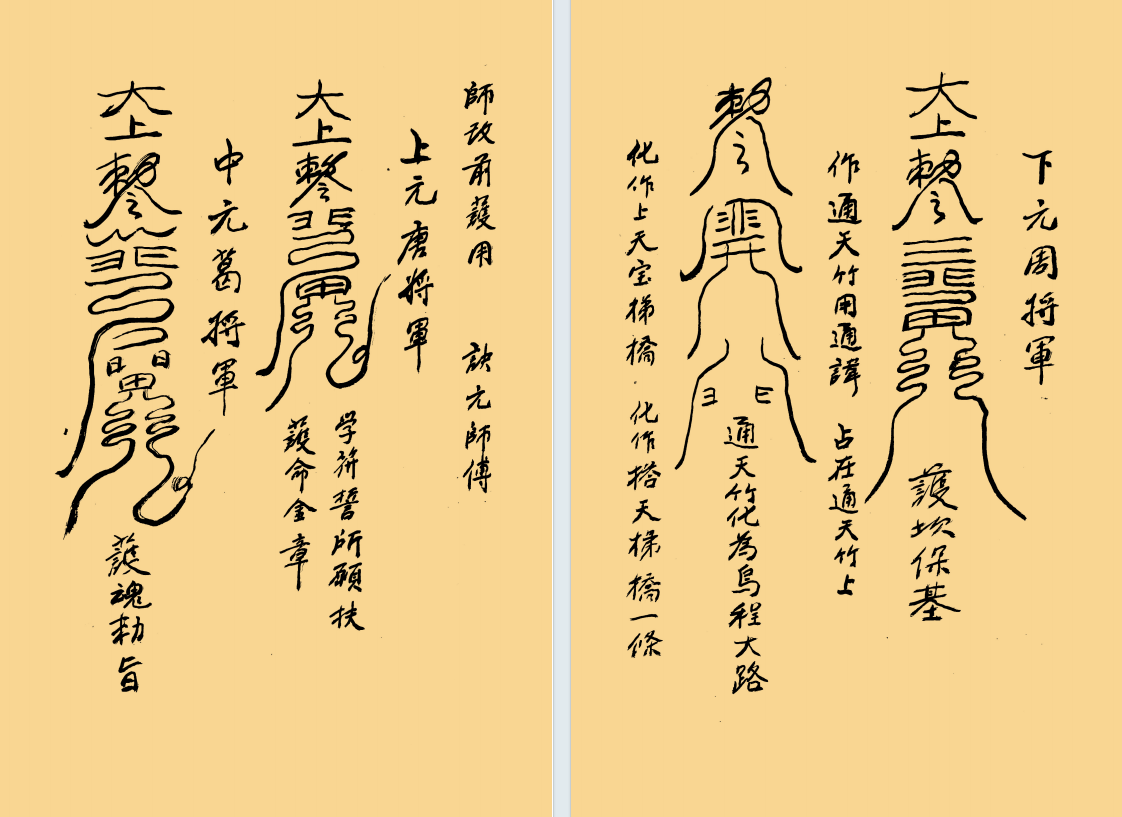 師政前護用 訣元師傅
上元唐將軍
大上敕令
学符誓所願扶
護命金章
中元葛將軍
大上敕令
護魂勅旨
下元周將軍
大上敕令
護坎保基
作通天竹用通諱 占在通天竹上
敕令
通天竹化為烏程大路
化作上天宝梯橋 化作搭天梯橋一條